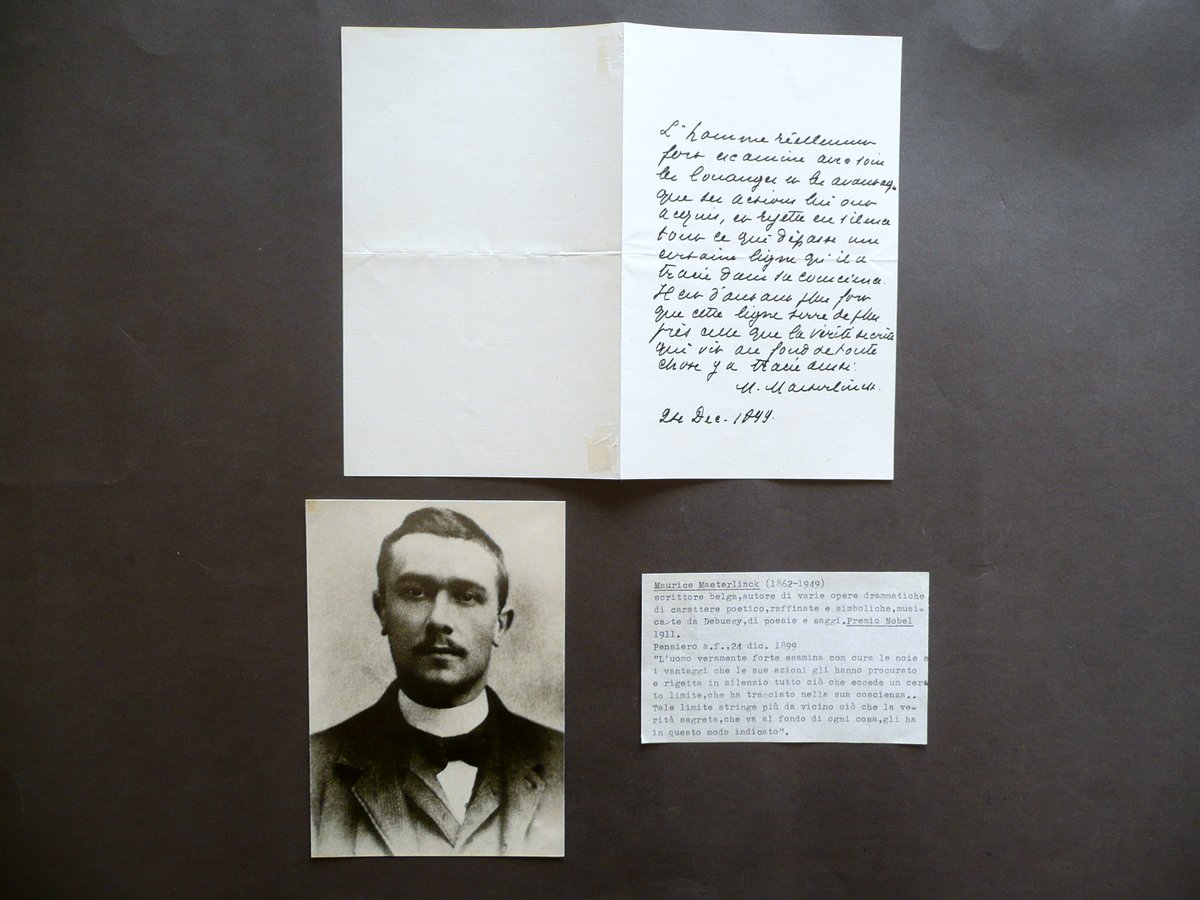 L'homme réellement
fort examine avec soin
les louanges et les avantag.
que ses actions lui ont
acquis, et rejette en silence
tout ce qui dépasse une
certaine ligne qu'il a
tracée dans sa conscience.
Il est d'autant plus fort
que cette ligne serre de plus
près celle que la vérité secrète
qui vit au fond de toute
chose y a tracée aussi.
M. Maeterlinck.
Dec.
Maurice Maeterlinck (1862-1949)
scrittore belga,autore di varie opere drammatiche
di carattere poetico,raffinate e simboliche,musi=
cate da Debussy,di poesie e saggi.Premio Nobel
1911.
Pensiero a.f.,24 dic. 1899
"L'uomo veramente forte esamina con cura le noie e
i vantaggi che le sue azioni gli hanno procurato
e rigetta in silenzio tutto ciò che eccede un cer=
to limite,che ha tracciato nella sua coscienza..
Tale limite stringe più da vicino ciò che la ve=
rità segreta,che va al fondo di ogni cosa,gli ha
in questo modo indicato".